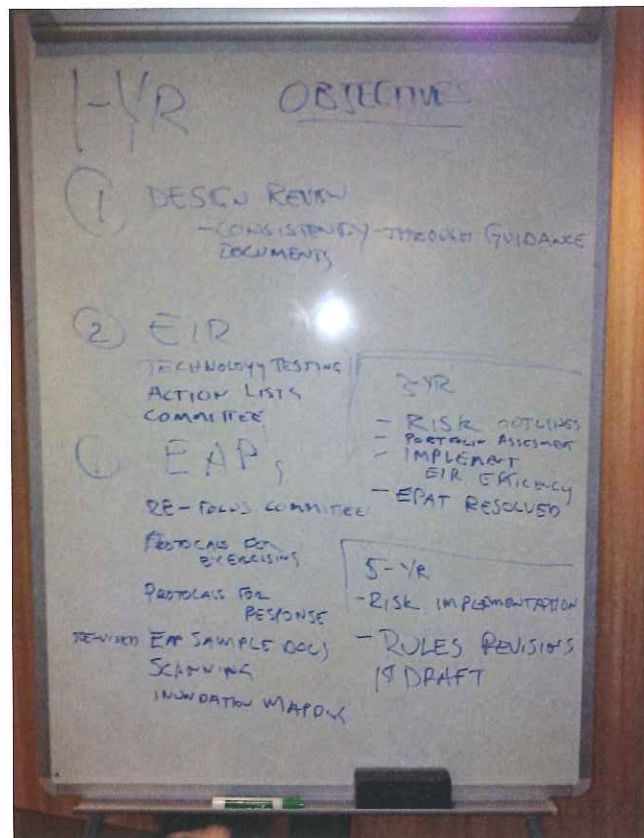 1-YR OBJECTIVES
1 DESIGN REVIEW
- CONSISTENTLY THROUGH GUIDANCE
DOCUMENTS
2 EIR
TECHNOLOGY TESTING
ACTION LISTS
COMMITTEE
EAPs
RE-FOCUS COMMITTEE
PROTOCALS FOR
EXERCISING
PROTOCALS FOR
RESPONSE
EAP SAMPLE DOCS
SCANNING
INUNDATION MAPPING
-YR
- RISK OUTLINES
- PORTFOLIO ASSESMENT
- IMPLEMENT
EIR EFFICIENCY
- EPAT RESOLVED
5-YR
- RISK IMPLEMENTATION
- RULES REVISIONS
1st DRAFT